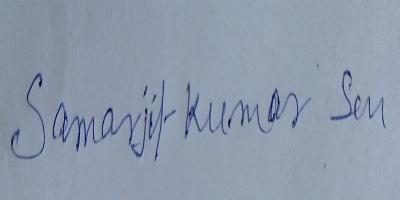 Samarjit Kumar Sen